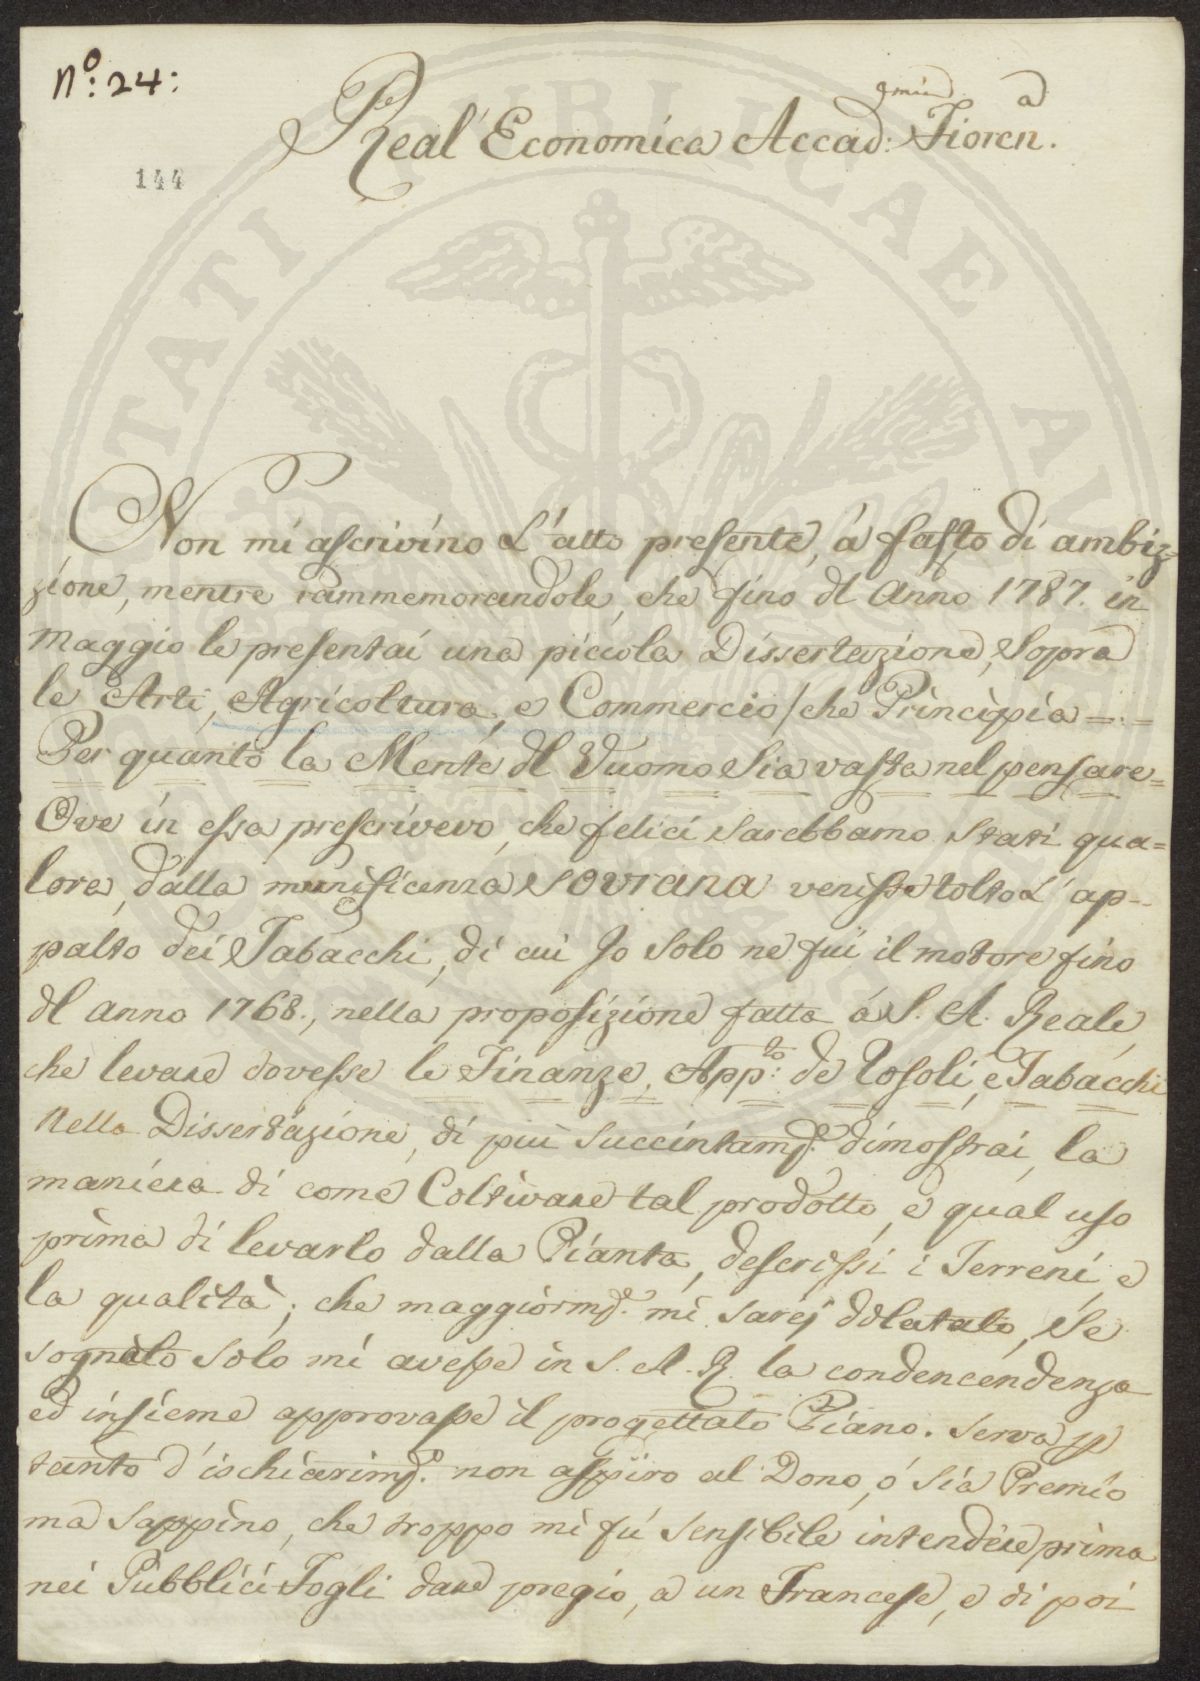 Nº: 24:
Real' Economica Accad: Fioren.
144
Non mi ascrivino L'atto presente, á fasto di ambiz=
zione, mentre rammemorandole, che fino dl Anno 1787. in
Maggio le presentai una picciola Dissertazione, Sopra
le Arti, Agricoltura, e Commercio / che Principia =..=
Per quanto la Mente dl Vuomo Sia vasta nel pensare=
Ove in essa prescrivevo, che felici sarebbamo stati qua=
lora, dalla munificenza SOVRANA venisse tolto L'ap=
palto dei Tabacchi, di cui Jo solo ne fui il motore fino
dl anno 1768., nella proposizione fatta á S. A. Reale,
che levare dovesse le Finanze, App:to de Rosoli, e Tabacchi
Nella Dissertazione, di piu succintamte. dimostrai, la
maniera di come Coltivare tal prodotto, e qual uso
prima di levarlo dalla Pianta, descrissi i Terreni, e
la qualità; che maggiormte. mi sarej dilatato, Se
sognato solo mi avesse in S. A. R. la condencendenza
ed insieme approvasse il progettato Piano. Serva p
tanto d'ischiarimto. non aspiro al Dono, ó sia Premio
ma Sappino, che troppo mi fú sensibile intendere prima
nei Pubblici Fogli dare pregio, a un Francese, e di poi